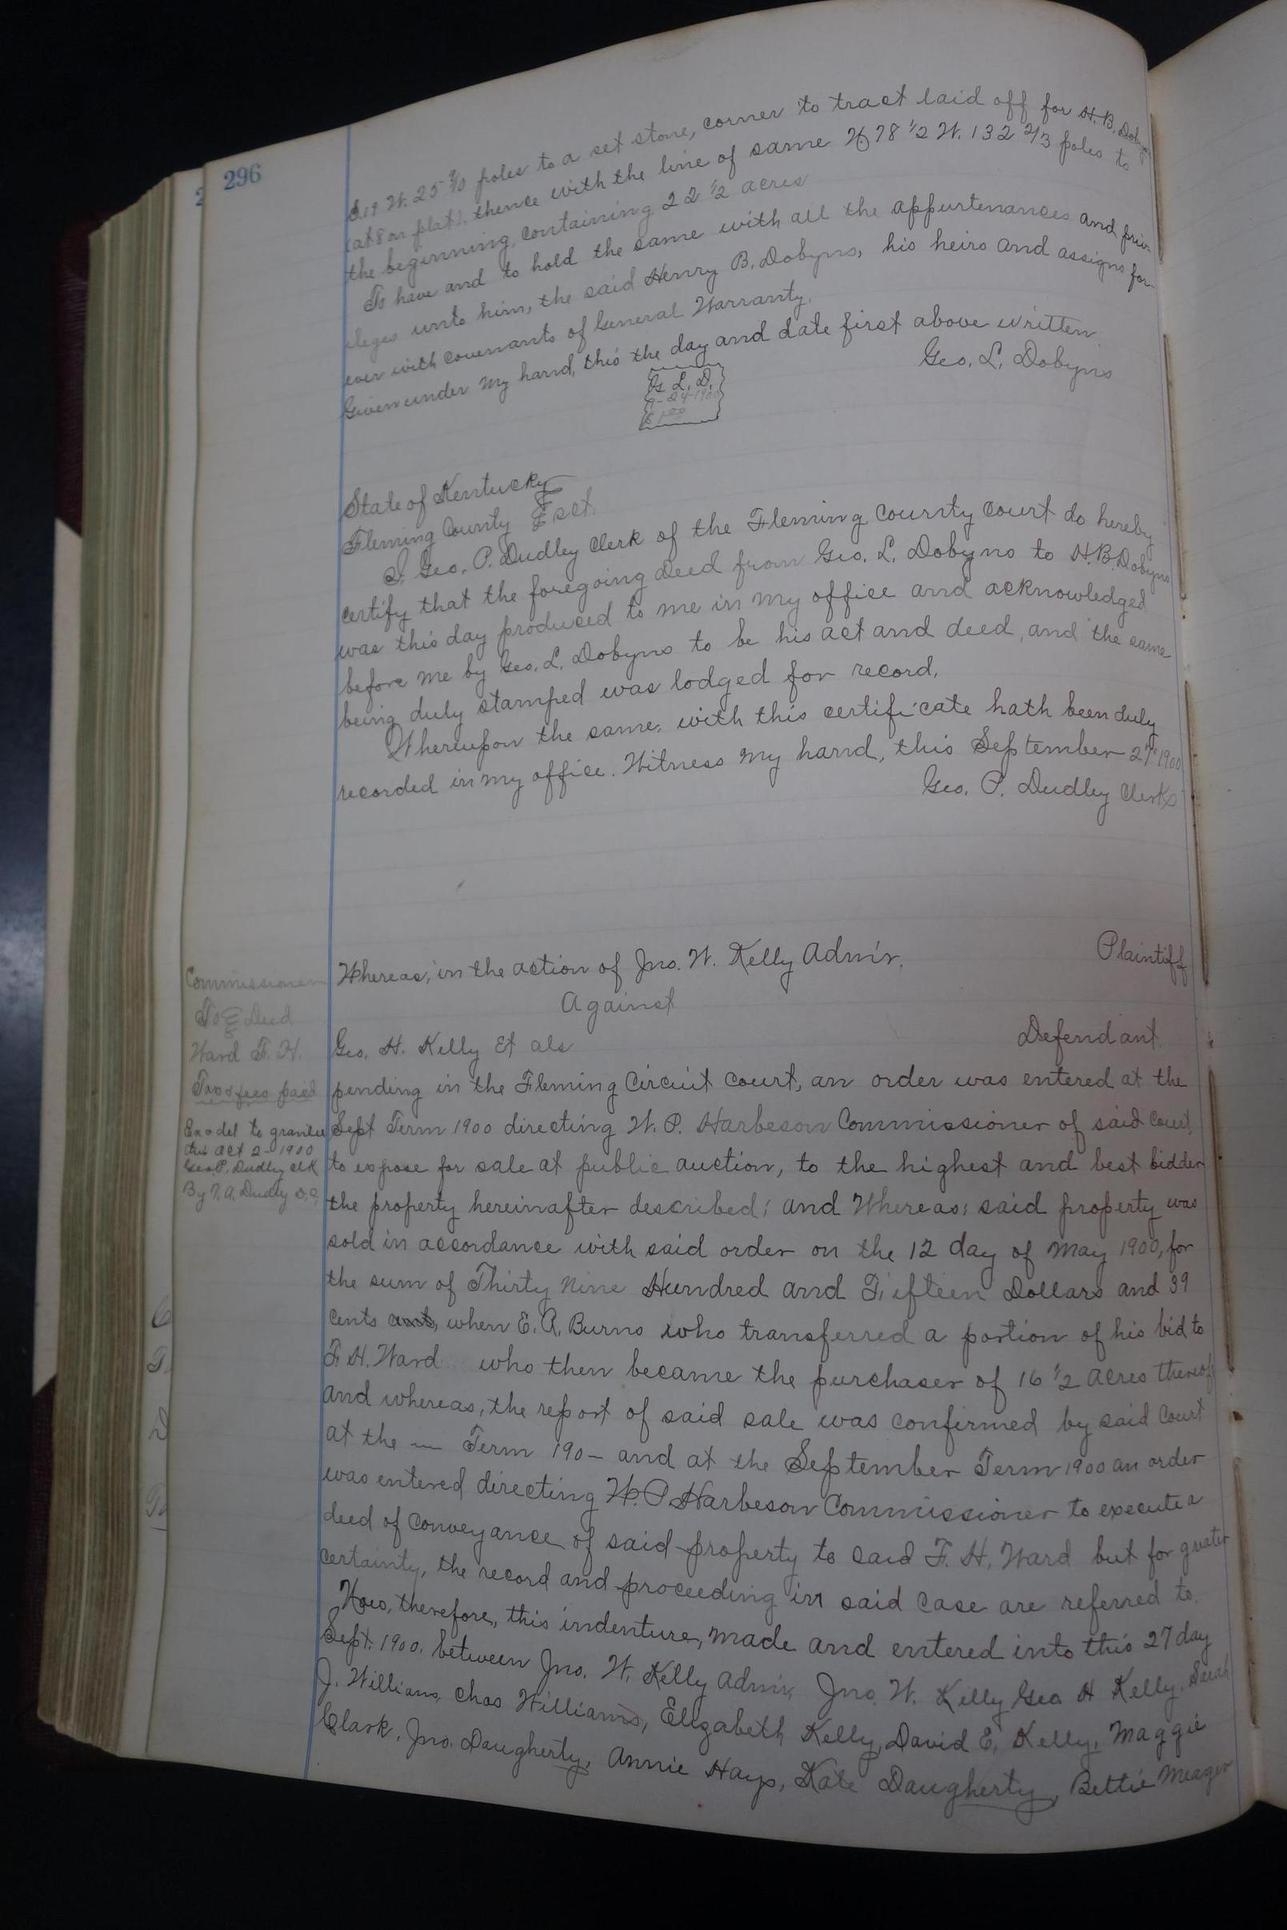 296
S. 19 W. 25 7/10 poles to a set stone, corner to tract laid off for H. B. Dobyns
(at 8 on plat), thence with the line of same N 78 1/2 W. 132 2/3 poles to
the beginning, containing 22 1/2 acres
To have and to hold the same with all the appurtenances and priv-
ileges unto him, the said Henry B. Dobyns, his heirs and assigns for-
ever with covenants of General Warranty.
Given under my hand, this the day and date first above written.
Geo. L. Dobyns
G. L. D.
9-24-1900
$1.00
State of Kentucky
Fleming County Sct.
I, Geo. P. Dudley Clerk of the Fleming County Court do hereby
certify that the foregoing deed from Geo. L. Dobyns to H. B. Dobyns
was this day produced to me in my office and acknowledged
before me by Geo. L. Dobyns to be his act and deed, and the same
being duly stamped was lodged for record.
Whereupon the same, with this certificate hath been duly
recorded in my office. Witness my hand, this September 27" 1900
Geo. P. Dudley Clerk
Commissioner
To Deed
Ward F. H.
Tax & fees paid
Ex & del to grantee
this Oct 2 - 1900
Geo P. Dudley Clk
By T. A. Dudley D.C.
Whereas, in the action of Jno. W. Kelly Adm'r. Plaintiff
Against
Geo. H. Kelly Et als Defendant.
pending in the Fleming Circuit Court, an order was entered at the
Sept Term 1900 directing W. P. Harbeson Commissioner of said Court,
to expose for sale at public auction, to the highest and best bidder
the property hereinafter described; and Whereas; said property was
sold in accordance with said order on the 12 day of May 1900, for
the sum of Thirty Nine Hundred and Fifteen Dollars and 39
cents when E. A. Burns who transferred a portion of his bid to
F. H. Ward who then became the purchaser of 16 1/2 acres thereof
and whereas, the report of said sale was confirmed by said Court
at the — Term 190– and at the September Term 1900 an order
was entered directing W. P. Harbeson Commissioner to execute a
deed of conveyance of said property to said F. H. Ward but for greater
certainty, the record and proceeding in said case are referred to.
Now, therefore, this indenture, made and entered into this 27 day
Sept. 1900, between Jno. W. Kelly Admr, Jno. W. Kelly, Geo H Kelly, Sarah
J. Williams, Chas Williams, Elizabeth Kelly, David E. Kelly, Maggie
Clark, Jno. Daugherty, Annie Hays, Kate Daugherty, Bettie Meager